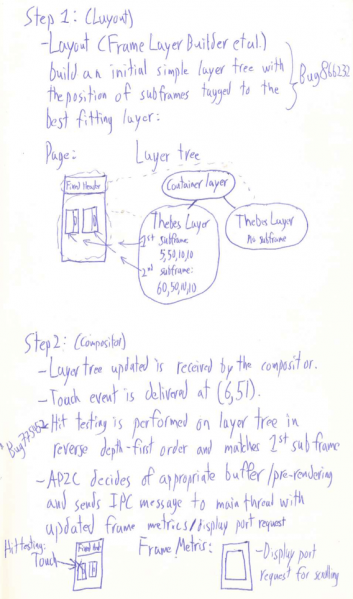 Step 1: (Layout)
-Layout (Frame Layer Builder et al.)
build an initial simple layer tree with
the position of subframes tagged to the
best fitting layer:
Bug 866232
Page:
Layer tree
Fixed Header
Container layer
Thebes Layer
1st subframe
5,50,10,10
2nd subframe:
60,50,10,10
Thebes Layer
no subframe
Step 2: (Compositor)
-Layer tree updated is received by the compositor.
-Touch event is delivered at (6,51).
-Hit testing is performed on layer tree in
reverse depth-first order and matches 1st subframe
-APZC decides of appropriate buffer/pre-rendering
and sends IPC message to main thread with
updated frame metrics/display port request
Hit testing:
Touch
Frame Metris:
-Display port
request for scrolling